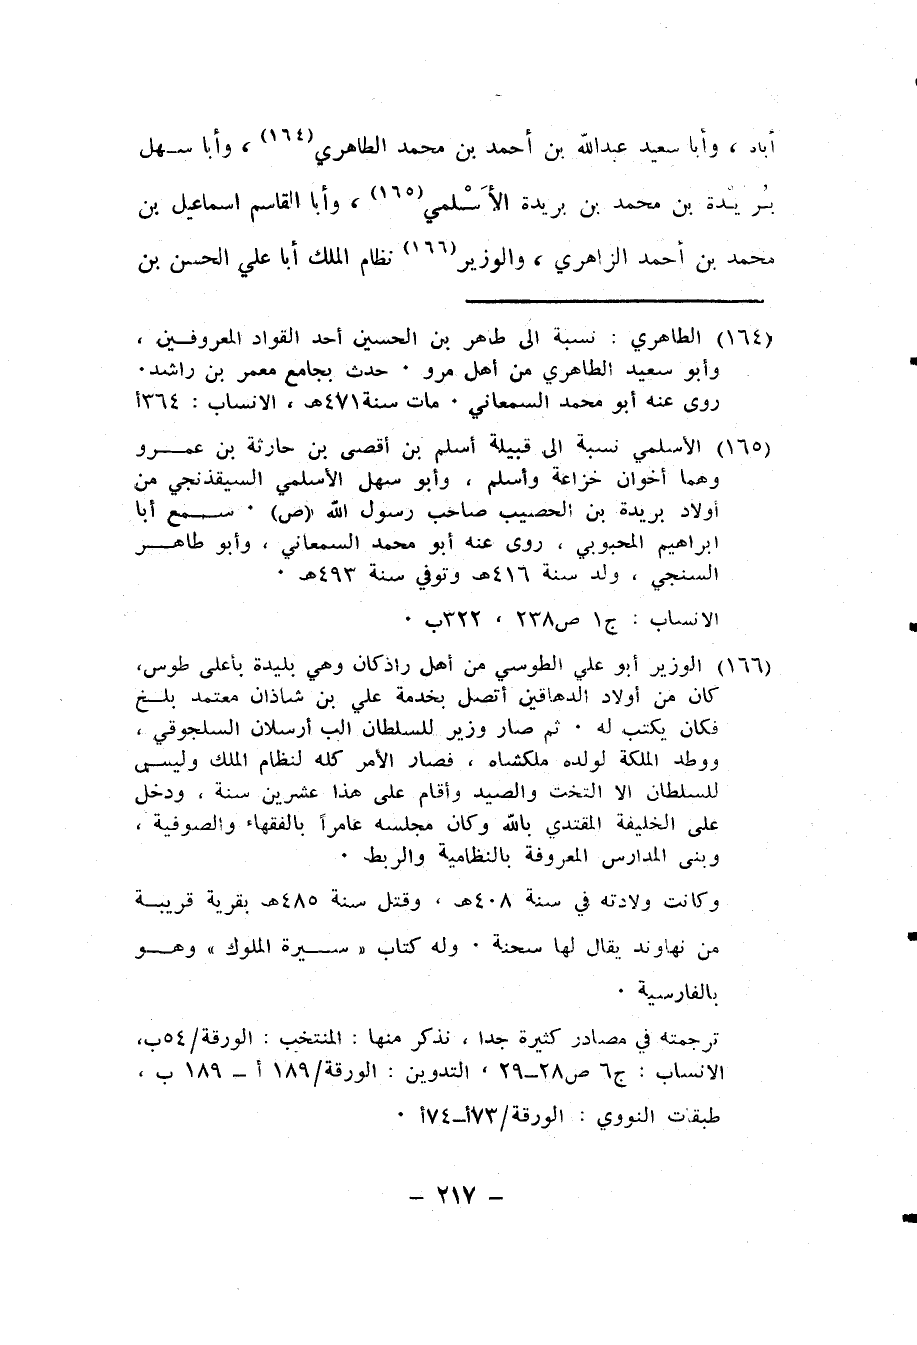 أباد ، وأبا سعيد عبدالله بن أحمد بن محمد الطاهري(١٦٤) ، وأبا ســهل
بُرَيْدة بن محمد بن بريدة الأَسْلمي(١٦٥) ، وأبا القاسم اسماعيل بن
محمد بن أحمد الزاهري ، والوزير(١٦٦) نظام الملك أبا علي الحسن بن
(١٦٤) الطاهري : نسبة الى طاهر بن الحسين أحد القواد المعروفــين ،
وأبو سعيد الطاهري من أهل مرو ٠ حدث بجامع معمر بن راشد٠
روى عنه أبو محمد السمعاني ٠ مات سنة٤٧١هـ ، الانساب : ٣٦٤أ
(١٦٥) الأسلمي نسبة الى قبيلة أسلم بن أقصى بن حارثة بن عمـــرو
وهما أخوان خزاعة وأسلم ، وأبو سهل الأسلمي السيقذنجي من
أولاد بريدة بن الحصيب صاحب رسول الله (ص) ٠ ســـمع أبا
ابراهيم المحبوبي ، روى عنه أبو محمد السمعاني ، وأبو طاهــر
السنجي ، ولد سنة ٤١٦هـ وتوفي سنة ٤٩٣هـ ٠
الانساب : ج١ ص٢٣٨ ، ٣٢٢ب ٠
(١٦٦) الوزير أبو علي الطوسي من أهل راذكان وهي بليدة بأعلى طوس،
كان من أولاد الدهاقين أتصل بخدمة علي بن شاذان معتمد بلــخ
فكان يكتب له ٠ ثم صار وزير للسلطان الب أرسلان السلجوقي ،
ووطد الملكة لولده ملكشاه ، فصار الأمر كله لنظام الملك وليــس
للسلطان الا التخت والصيد وأقام على هذا عشرين سنة ، ودخل
على الخليفة المقتدي بالله وكان مجلسه عامراً بالفقهاء والصوفية ،
وبنى المدارس المعروفة بالنظامية والربط ٠
وكانت ولادته في سنة ٤٠٨هـ ، وقتل سنة ٤٨٥هـ بقرية قريبــة
من نهاوند يقال لها سحنة ٠ وله كتاب « ســـيرة الملوك » وهـــو
بالفارسية ٠
ترجمته في مصادر كثيرة جدا ، نذكر منها : المنتخب : الورقة/٥٤ب،
الانساب : ج٦ ص٢٨ــ٢٩ ، التدوين : الورقة/١٨٩ أ ــ ١٨٩ ب ،
طبقات النووي : الورقة/٧٣أــ٧٤أ ٠
ــ ٢١٧ ــ